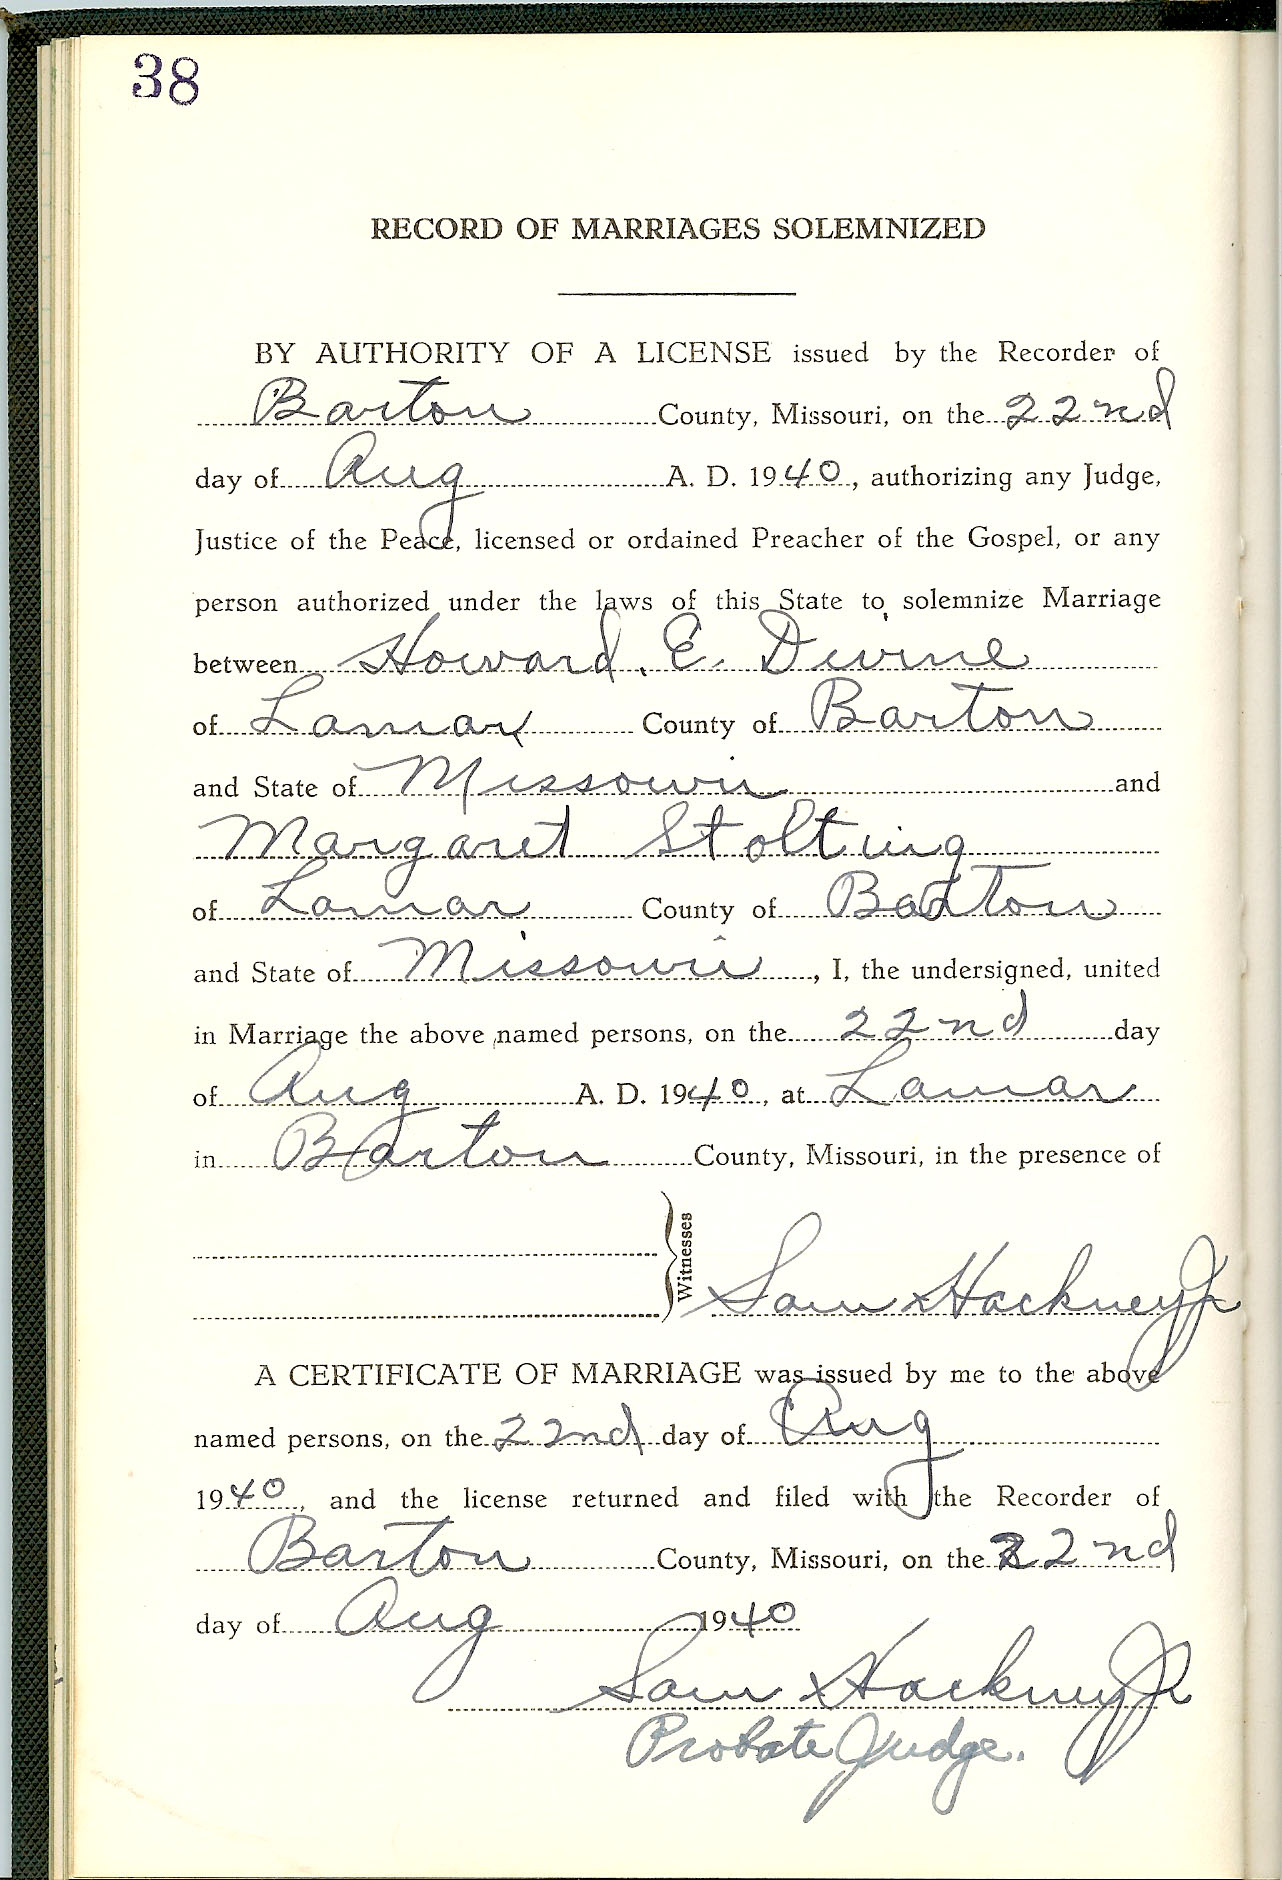 38
RECORD OF MARRIAGES SOLEMNIZED
BY AUTHORITY OF A LICENSE issued by the Recorder of
Barton County, Missouri, on the 22nd
day of Aug A. D. 1940, authorizing any Judge,
Justice of the Peace, licensed or ordained Preacher of the Gospel, or any
person authorized under the laws of this State to solemnize Marriage
between Howard E. Divine
of Lamar County of Barton
and State of Missouri and
Margaret Stolting
of Lamar County of Barton
and State of Missouri, I, the undersigned, united
in Marriage the above named persons, on the 22nd day
of Aug A. D. 1940, at Lamar
in Barton County, Missouri, in the presence of
Witnesses
Sam Hackney Jr
A CERTIFICATE OF MARRIAGE was issued by me to the above
named persons, on the 22nd day of Aug
1940, and the license returned and filed with the Recorder of
Barton County, Missouri, on the 22nd
day of Aug 1940
Sam Hackney Jr
Probate Judge.